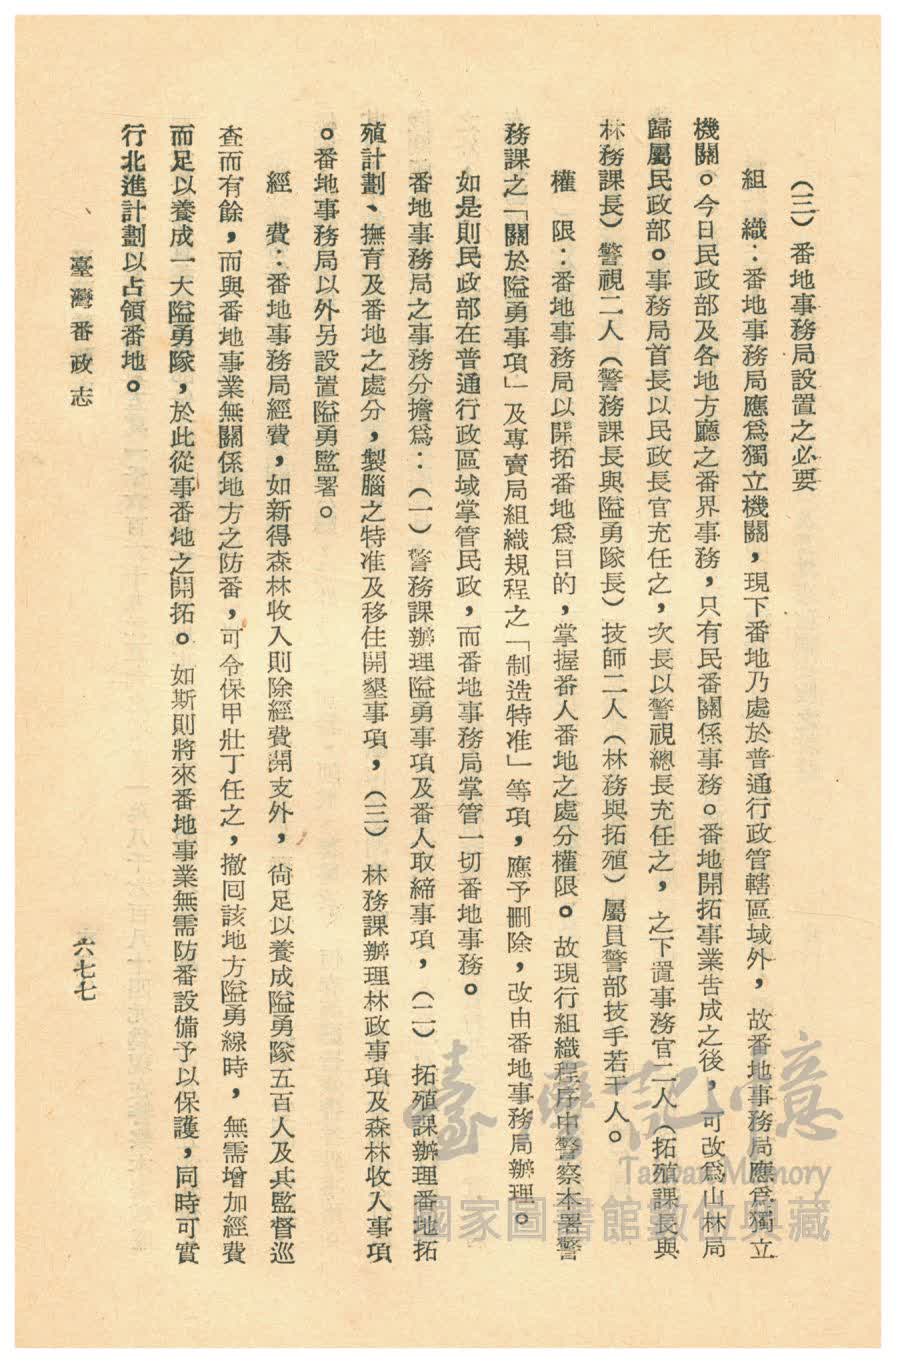 （三）番地事務局設置之必要
組　織：番地事務局應爲獨立機關，現下番地乃處於普通行政管轄區域外，故番地事務局應爲獨立
機關。今日民政部及各地方廳之番界事務，只有民番關係事務。番地開拓事業告成之後，可改爲山林局
歸屬民政部。事務局首長以民政長官充任之，次長以警視總長充任之，之下置事務官二人（拓殖課長與
林務課長）警視二人（警務課長與隘勇隊長）技師二人（林務與拓殖）屬員警部技手若干人。
權　限：番地事務局以開拓番地爲目的，掌握番人番地之處分權限。故現行組織程序中警察本署警
務課之「關於隘勇事項」及專賣局組織規程之「制造特准」等項，應予刪除，改由番地事務局辦理。
如是則民政部在普通行政區域掌管民政，而番地事務局掌管一切番地事務。
番地事務局之事務分擔爲：（一）警務課辦理隘勇事項及番人取締事項，（二）拓殖課辦理番地拓
殖計劃、撫育及番地之處分，製腦之特准及移住開墾事項，（三）林務課辦理林政事項及森林收入事項
。番地事務局以外另設置隘勇監署。
經　費：番地事務局經費，如新得森林收入則除經費開支外，尙足以養成隘勇隊五百人及其監督巡
查而有餘，而與番地事業無關係地方之防番，可令保甲壯丁任之，撤回該地方隘勇線時，無需增加經費
而足以養成一大隘勇隊，於此從事番地之開拓。如斯則將來番地事業無需防番設備予以保護，同時可實
行北進計劃以占領番地。
臺灣番政志
六七七
臺灣記憶
Taiwan Memory
國家圖書館數位典藏